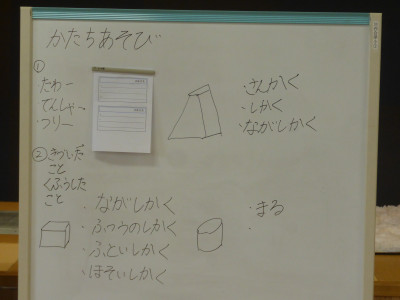 かたちあそび
①
たわー
でんしゃ
・つりー
・さんかく
・しかく
・ながしかく
②きづいた
こと
くふうした
こと
・ながしかく
・ふつうのしかく
・ふといしかく
・ほそいしかく
・まる
・